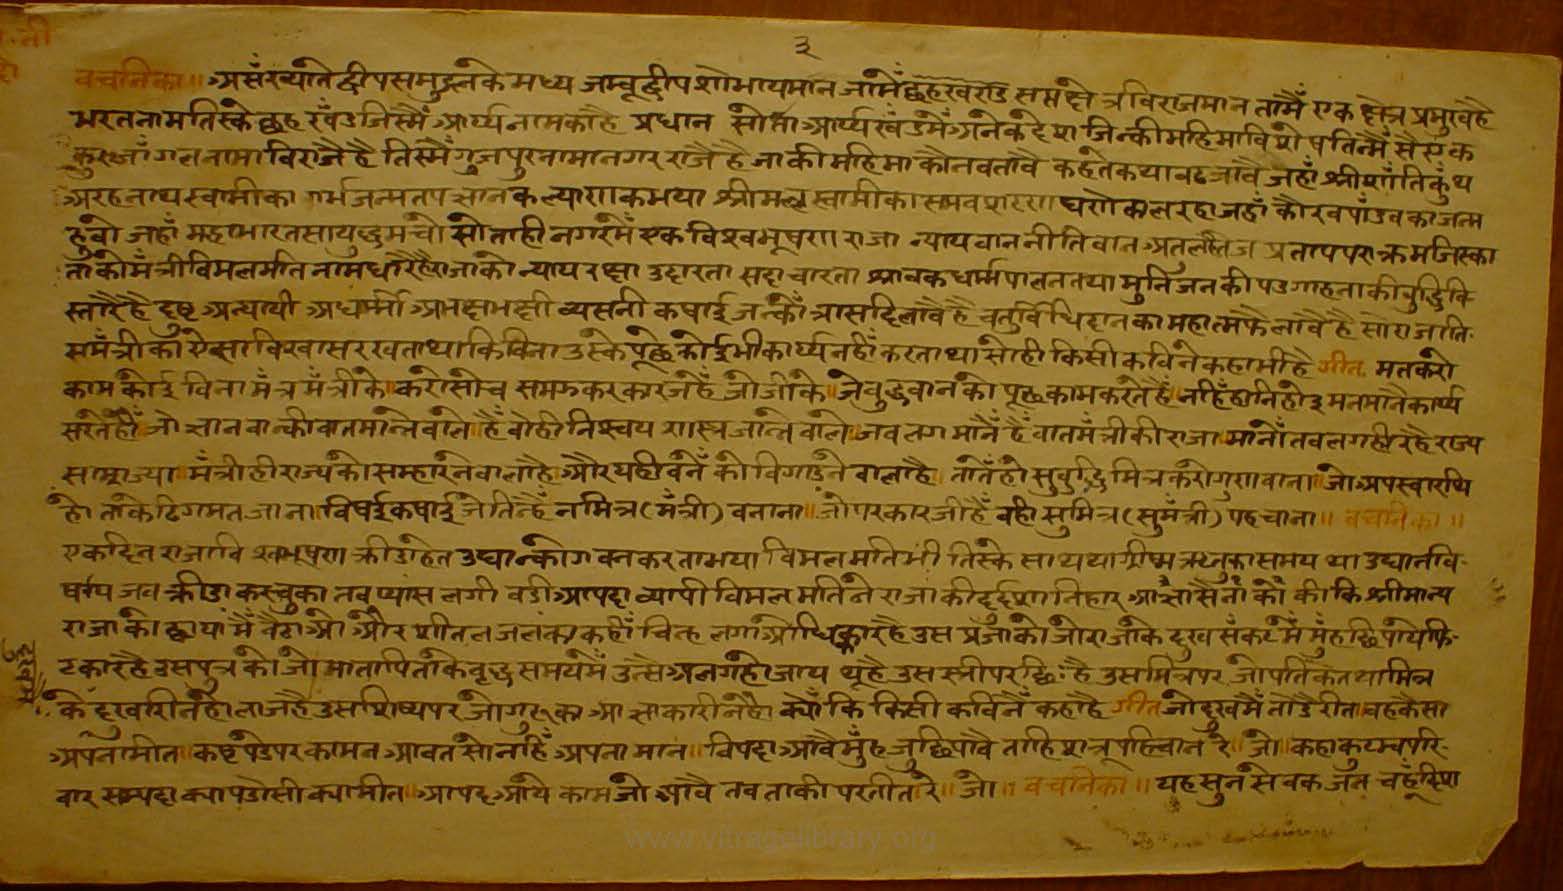 ३
वचनिका॥ असंख्याते द्वीप समुद्रनके मध्य जम्बूद्वीप शोभायमान जामें छह खण्ड सप्त क्षेत्र विराजमान तामैं एक क्षेत्र प्रमुख है
भरतनाम तिस्के छह खंड जिस्मैं आर्य्यनामका है प्रधान सो ता आर्य्यखंडमें अनेक देश जिन्की महिमा विशेष तिन्मैं सै एक
कुरुजांगल नामा विराजै है तिस्मैं गजपुर नामा नगर राजै है जाकी महिमा कौन बतावै कहते कथा बढ जावै जहाँ श्रीशांति कुंथ
अरहनाथ स्वामीका गर्भ जन्म तप ज्ञान कल्याणक भया श्रीमल्ल स्वामीका समवशरण घणे काल रहा जहाँ कौरव पांडव का जन्म
हुवो जहाँ महाभारतसा युद्ध मचो सो ताही नगरमें एक विश्वभूषण राजा न्यायवान नीतिवान अतुल तेज प्रताप पराक्रम जिस्का
ताको मंत्री विमलमति नाम धारै है राजाको न्याय रक्षा उदारता सदाचारता श्रावक धर्म्म पालन तथा मुनिजनकी पडगाहनाकी बुद्धि वि-
स्तारै है दुष्ट अन्यायी अधर्म्मी अभक्षभक्षी व्यसनी कषाई जन्कों त्रास दिलावै है चतुर्विधि दानका महात्म फैलावै है सो राजा ति-
स मंत्रीका ऐसा विश्वास रखता था कि विना उस्के पूछे कोई भी कार्य्य नहीं करता था सो ही किसी कविने कहा भी है गीत. मत करो
काम कोई विना मंत्र मंत्रीके॥ करो सोच समझकर कारज हैं जो जीके॥ जे बुद्धवानको पूछ काम करते हैं॥ नहिं हानि होइ मनमानै कार्य्य
सरते हैं॥ जो ज्ञानवान्की बात मान्ने वाले हैं वोही निश्चय शास्त्र जान्ने वाले॥ जब लग मानैं हैं बात मंत्रीकी राजा॥ मानों तब लगही रहै राज्य
साम्राज्या॥ मंत्री ही राज्यको सम्हारने वाला है॥ और यही बनें को विगाडने वाला है॥ तातें हो सुबुद्धि मित्र करो गुणवाना॥ जो अपस्वारथि
हो ताके ढिग मत जाना॥ विषई कषाई जे तिन्हैं न मित्र (मंत्री) बनाना॥ जो परकारजी हैं वही सुमित्र (सुमंत्री) पहचाना॥ वचनिका॥
एक दिन राजा विश्वभूषण क्रीडा हेत उद्यान्को गवन करता भया विमलमति भी तिस्के साथ था ग्रीष्म ऋतुका समय था उद्यानवि-
षय जब क्रीडा कर चुका तब प्यास लगी बडी आपदा व्यापी विमलमतिने राजाकी दुर्दशा निहार आज्ञा सैनां कों की कि श्रीमान्य
राजाको छाया मैं बैठाओ और शीतल जलका कहीं चिन्ह लगाओ धिक्कार है उस प्रजाको जो राजाके दुख संकटमें मुंह छिपाये फि-
टकार है उस पुत्रको जो माता पिताके वृद्ध समयमें उन्से अलग हो जाय थू है उस स्त्रीपर छिः है उस मित्रपर जो पति के तथा मित्र
के दुखारी न हो लाज है उस शिष्यपर जो गुरूका आज्ञाकारी न हो क्योंकि किसी कविनैं कहा है गीत जो दुखमैं तोडै रीत॥ वह कैसा
अपना मीत॥ कष्ट पडे पर काम न आवत सो नहिं अपना मान॥ विपदा आवै मुंह जु छिपावै ताहि शत्रू पहिचान रे॥ जो॥ कहा कुटम्ब परि-
वार सम्पदा क्या पडोसी क्या मीत॥ आपद आये काम जो आवै तब ताकी परतीत रे॥ जो॥ वचनिका॥ यह सुन सेवक जन चहूंदिश
www.vitragelibrary.org